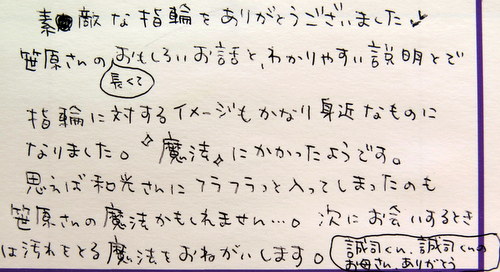 素敵な指輪をありがとうございました♪
笹原さんのおもしろいお話と、わかりやすい説明とで
長くて
指輪に対するイメージもかなり身近なものに
なりました。“魔法”にかかったようです。
思えば和光さんにフラフラっと入ってしまったのも
笹原さんの魔法かもしれません…。次にお会いするとき
は汚れをとる魔法をおねがいします。
誠司くん、誠司くんの
お母さん、ありがとう